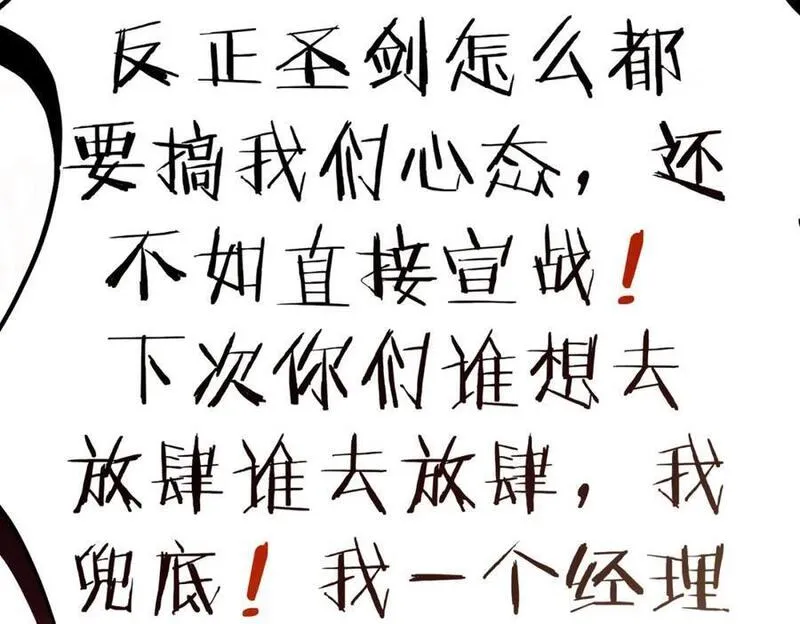 反正圣剑怎么都
要搞我们心态，还
不如直接宣战！
下次你们谁想去
放肆谁去放肆，我
兜底！我一个经理